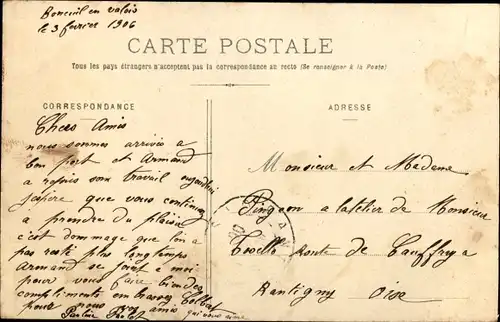 Boneuil en valois
le 3 février 1906
CARTE POSTALE
Tous les pays étrangers n'acceptent pas la correspondance au recto (Se renseigner à la Poste)
CORRESPONDANCE
Chers Amis
nous sommes arrivés a
bon port et Armand
a repris son travail
j'espère que vous continuez
a prendre du plaisir
c'est dommage que l'on a
pas resté plus longtemps
Armand se joint à moi
pour vous faire bien des
compliments
pour nous amis
qui vous aime
ADRESSE
Monsieur et Madame
Pingeon a latelier de Monsieur
Route de Cauffry a
Rantigny Oise